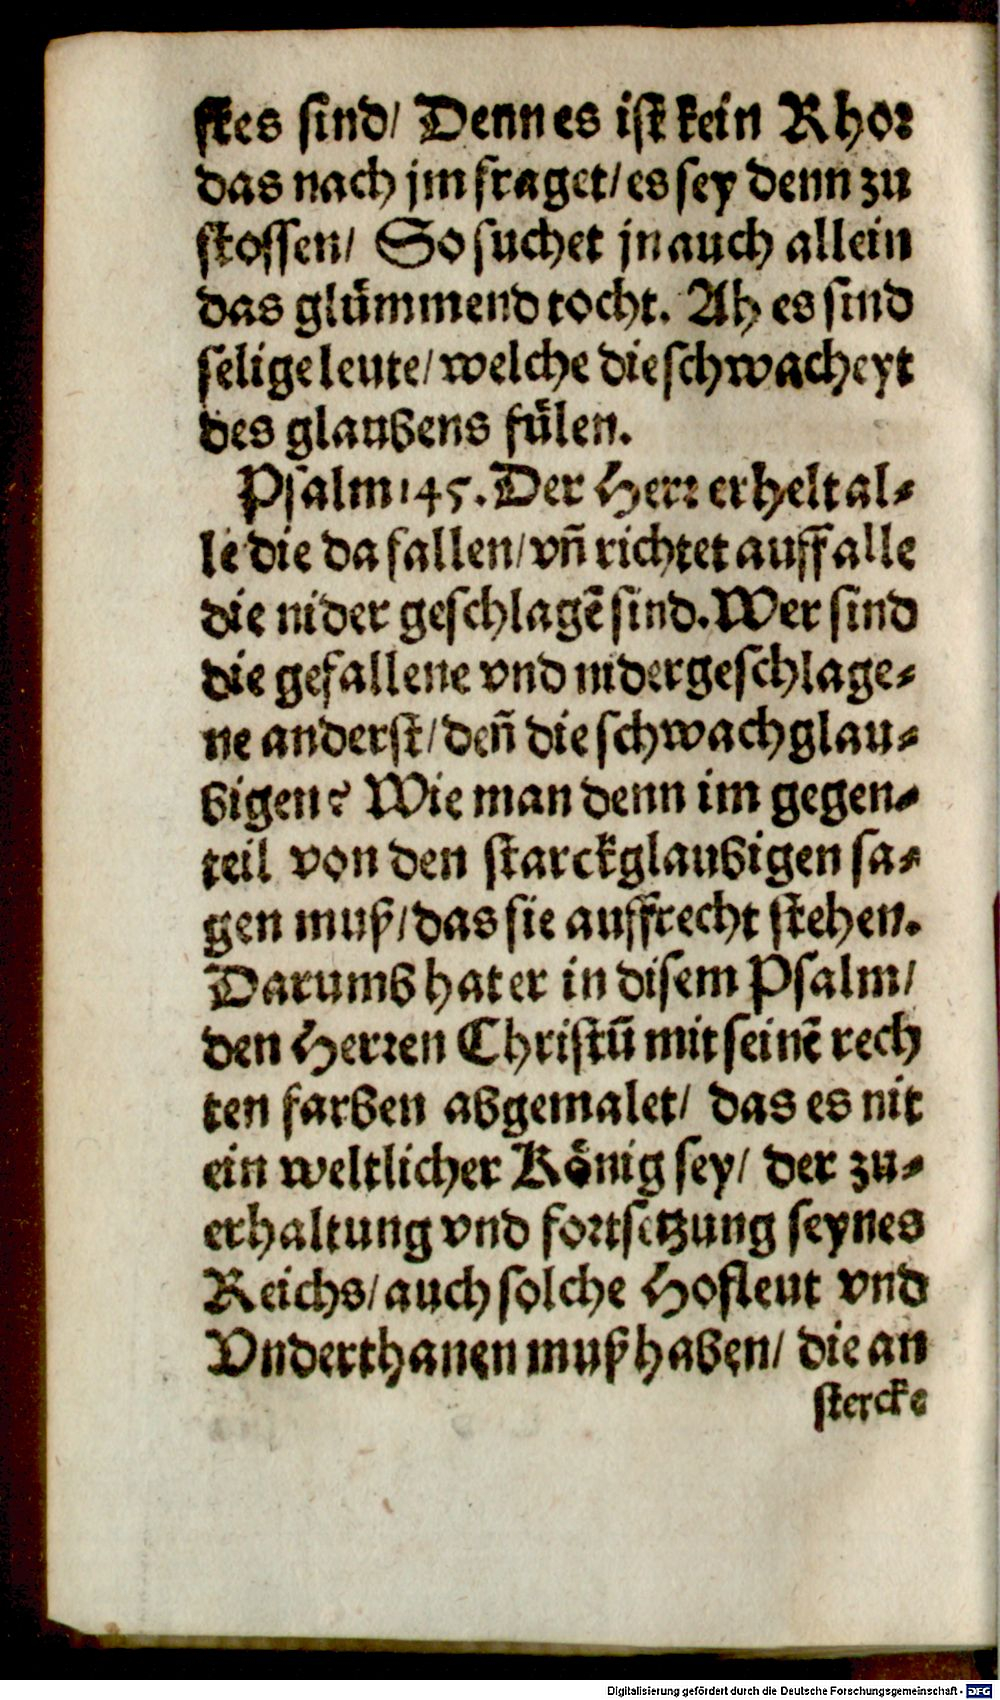 stes sind/ Denn es ist kein Rhor
das nach jm fraget/ es sey denn zu
stossen/ So suchet jn auch allein
das glümmend tocht. Ah es sind
selige leute/ welche die schwacheyt
des glaubens fülen.
Psalm 145. Der Herr erhelt al-
le die da fallen/ vñ richtet auff alle
die nider geschlagẽ sind. Wer sind
die gefallene vnd nidergeschlage-
ne anderst/ deñ die schwachglau-
bigen? Wie man denn im gegen-
teil von den starckglaubigen sa-
gen muß/ das sie auffrecht stehen.
Darumb hat er in disem Psalm/
den Herren Christũ mit seinẽ rech
ten farben abgemalet/ das es nit
ein weltlicher König sey/ der zu-
erhaltung vnd fortsetzung seynes
Reichs/ auch solche Hofleut vnd
Vnderthanen muß haben/ die an
stercke
Digitalisierung gefördert durch die Deutsche Forschungsgemeinschaft - DFG